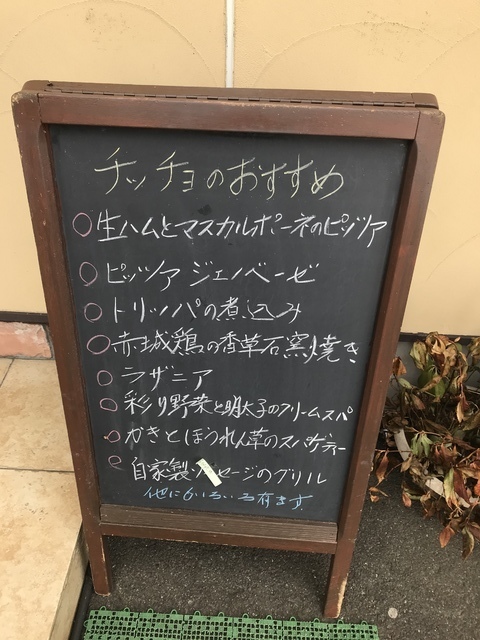 チッチョのおすすめ
○生ハムとマスカルポーネのピッツァ
○ピッツァ ジェノベーゼ
○トリッパの煮込み
○赤城鶏の香草石窯焼き
○ラザニア
○彩り野菜と明太子のクリームスパ
○かきとほうれん草のスパゲティー
○自家製 セージのグリル
他にいろいろ有ます